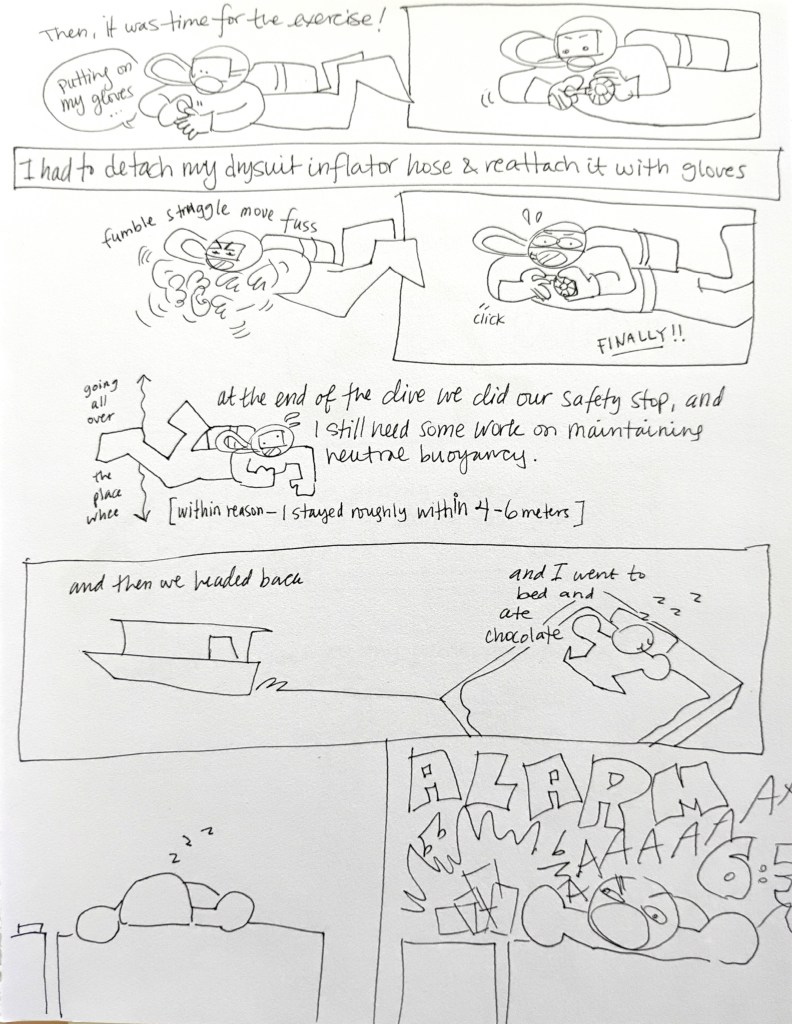 Then, it was time for the exercise!
putting on
my gloves
...
I had to detach my drysuit inflator hose & reattach it with gloves
fumble struggle move fuss
click
FINALLY!!
going
all
over
the
place
whee
at the end of the dive we did our safety stop, and
I still need some work on maintaining
neutral buoyancy.
[within reason – I stayed roughly within 4-6 meters]
and then we headed back
and I went to
bed and
ate
chocolate
z z z z
z z z
ALARM
AAAAAAA
6:5